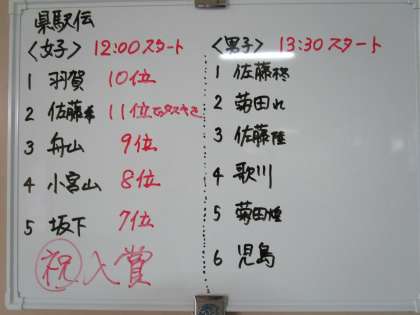 県駅伝
〈女子〉 12:00スタート
1 羽賀 10位
2 佐藤 11位でタスキを
3 舟山 9位
4 小宮山 8位
5 坂下 7位
祝 入賞
〈男子〉 13:30スタート
1 佐藤柊
2 菊田れ
3 佐藤陸
4 歌川
5 菊田煌
6 児島